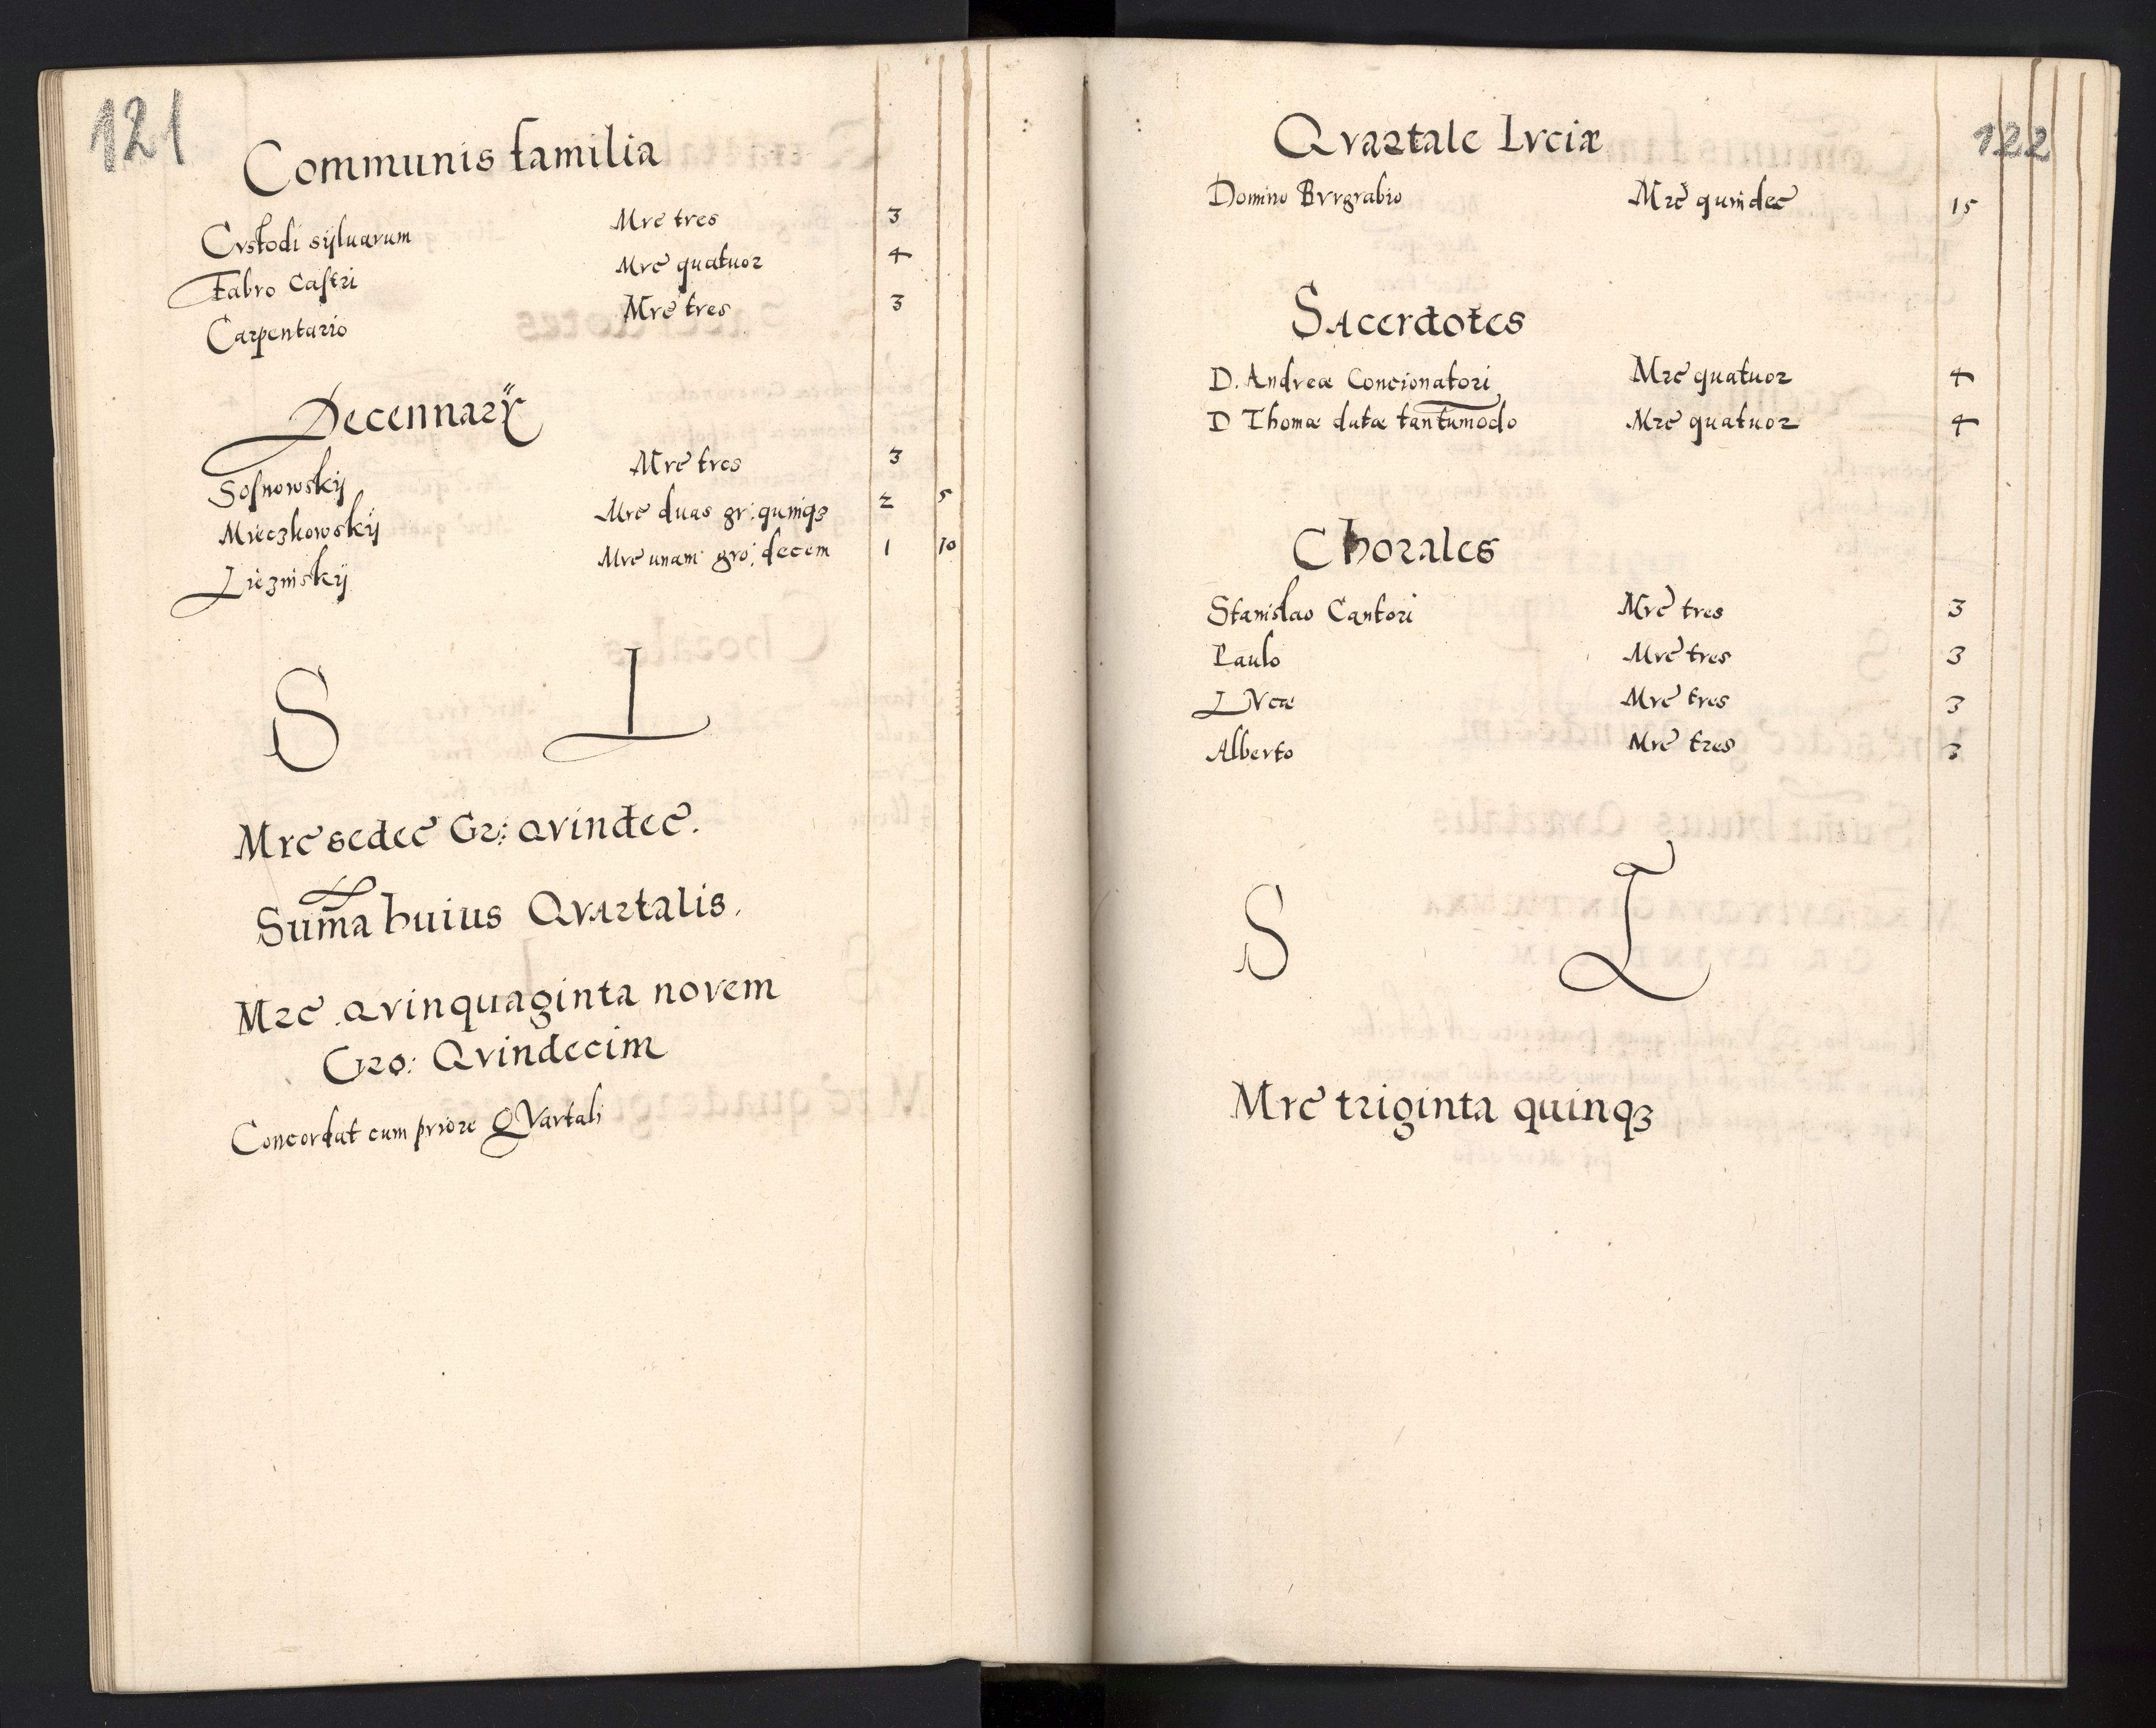 121
Communis familia
Cvstodi sÿluarum Mrc tres 3
Fabro Castri Mrc quatuor 4
Carpentario Mrc tres 3
Decennarÿ
Sosnowskÿ Mrc tres 3
Mieczkowskÿ Mrc duas gr: quinqꝫ 2 5
Mrc unam gro: decem 1 10
S L
Mrc sedec Gr: qvindec.
Sum̄a huius Qvartalis.
Mrc qvinquaginta novem
Gro: Qvindecim
Concordat cum priore QVartali
122
Qvartale Lvciæ
Domino Bvrgrabio Mrc quindec 15
Sacerdotes
D. Andreæ Concionatori Mrc quatuor 4
D Thomæ datæ tantum̄odo Mrc quatuor 4
Chorales
Stanislao Cantori Mrc tres 3
Paulo Mrc tres 3
LVcæ Mrc tres 3
Alberto Mrc tres 3
S L
Mrc triginta quinqꝫ